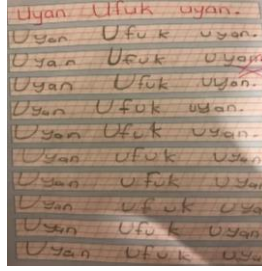 Uyan Ufuk uyan.
Uyan Ufuk uyan.
Uyan Ufuk uyan
Uyan Ufuk uyan.
Uyan Ufuk uyan.
Uyan Ufuk uyan.
Uyan Ufuk uyan
Uyan Ufuk uyan
Uyan Ufuk uya
Uyan Ufuk uyan
Uyan Ufuk uya